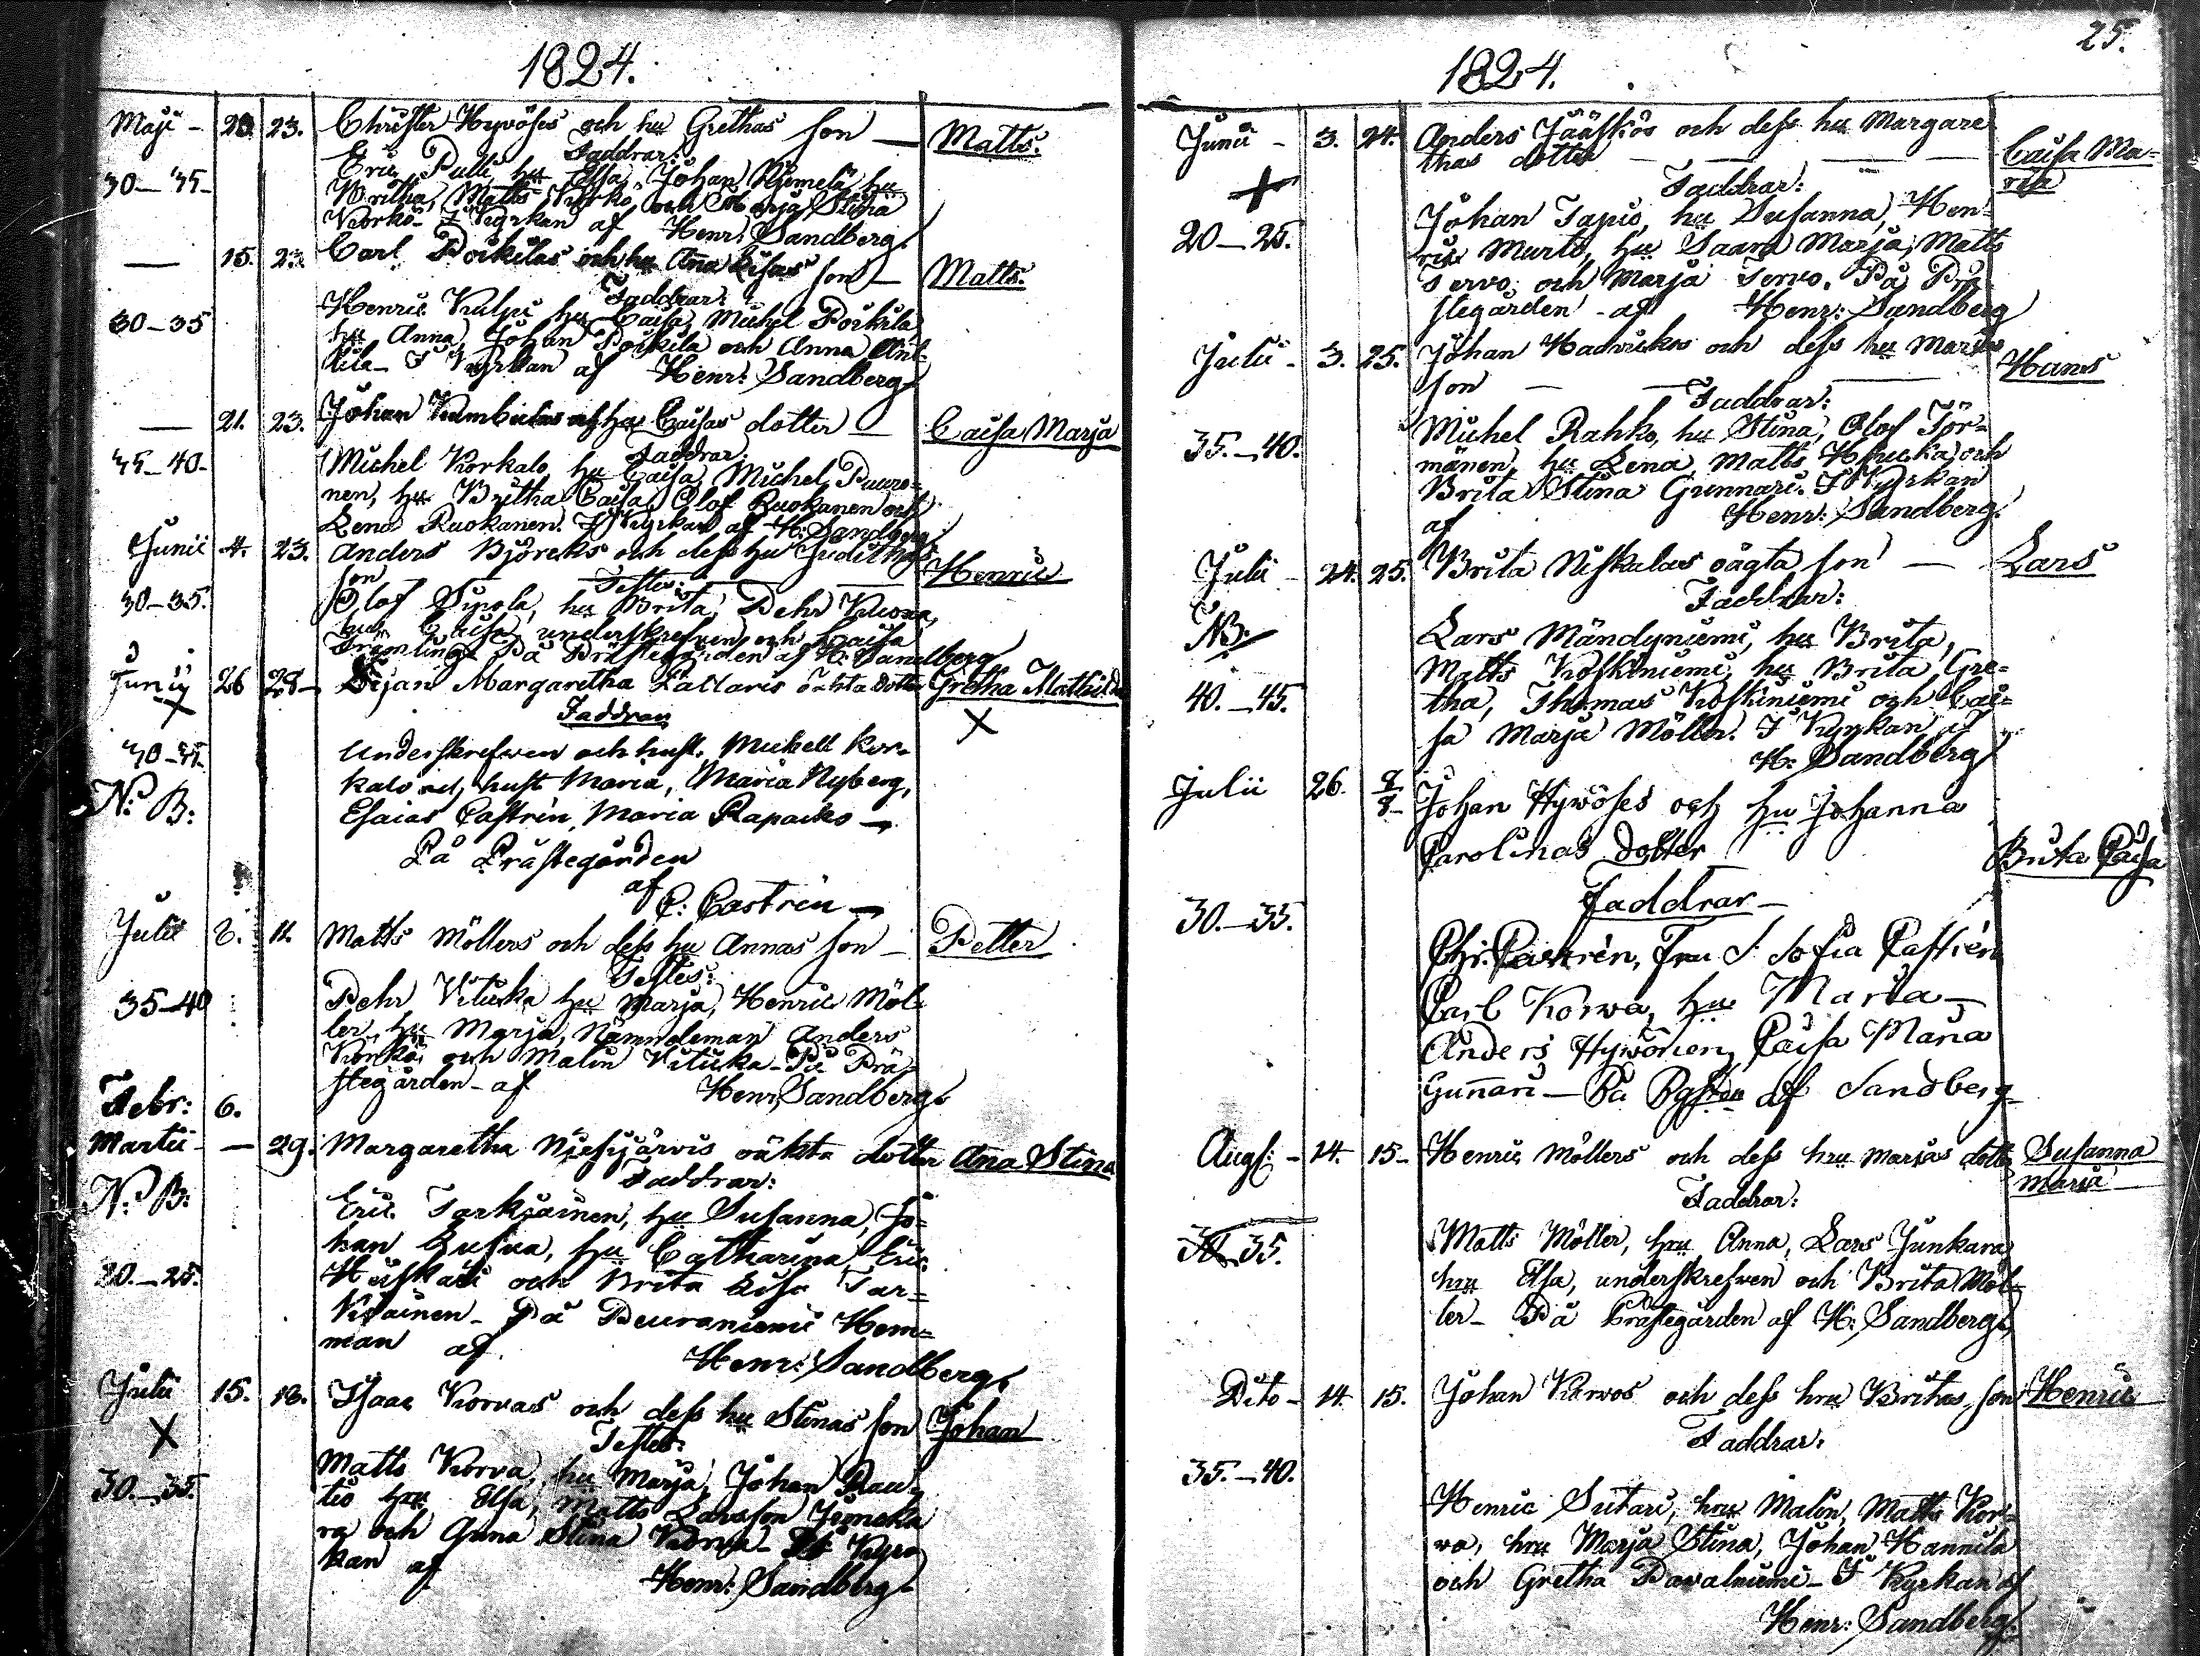 1824.
Maji - 20. 23. Christer Hyvöses och hu Grethas son — Matts.
Faddrar:
30-35- Eric Pulli, hu Elsa, Johan Niemelä, hu
Britha, Matts Korko, och Marja Stina
Korko - I Kyrkan af Henr: Sandberg.
— 15. 23. Carl Poikilas och hu Ana Lisas son — Matts.
Faddrar:
30-35 Henric Kulpi hu Caisa, Michel Poikila
hu Anna, Johan Poikila och Anna Ant-
tila - I Kyrkan af Henr: Sandberg.
— 21. 23. Johan Kumbulas och hu Caisas dotter — Caisa Marja
Faddrar:
35-40- Michel Korkalo, hu Caisa, Michel Puuro-
nen, hu Britha Caisa, Olof Ruokanen och
Lena Ruokanen. I Kyrkan af H: Sandberg.
Junii 4. 23. Anders Björcks och dess hu Judithas
son — Testes: — Henric
30-35. Olof Sipola, hu Brita, Pehr Kuona,
hu Caisa, underskrefwen och Caisa
Främling På Prästegården af H: Sandberg
Junij 26 28- Margaretha Lallaris oäkta dotter Gretha Mathilda
X Faddrar X
30-35. Underskrefwen och hust. Michell Kor-
N: B: kalo och hust Maria, Maria Nyberg,
Esaias Castrén, Maria Rapacko —
På Prästegården
af C: Castrén —
Julii 8. 11. Matts Möllers och dess hu Annas son — Petter
Testes:
35-40 Pehr Vituka hu Marja, Henric Möl-
ler, hu Marja, Nämndeman Anders
Korko och Malin Vituka - På Prä-
stegården - af Henr: Sandberg.
Febr: 6.
Martii - — 29. Margaretha Niesijärvis oäkta dotter Ana Stina
Faddrar:
N: B: Eric Tarkiainen, hu Susanna, Jo-
han hu Catharina, Eric
20.-25. och Brita Lisa Tar-
kiainen - På Peuraniemi Hem-
man af Henr: Sandberg.
Julii 15. 18. Isaac Korvas och dess hu Stinas son Johan
X Testes:
30.-35. Matts Korva, hu Marja, Johan Rau-
tio hu Elsa, Matts Larsson Juncka
ra och Anna Stina Korva - I Kyr-
kan af Henr: Sandberg -
25.
1824.
Junii - 3. 24. Anders Jääskös och dess hu Margare
thas dotter — — — Caisa Ma-
ria
Faddrar:
20-25. Johan Tapio, hu Susanna, Hen-
ric Murto, hu Saara Marja, Matts
Tervo, och Marja Tervo. På Prä-
stegården - af Henr: Sandberg
Julii - 3. 25. Johan Hadwicks och dess hu Marias
son — — Hans
Faddrar:
35.-40. Michel Rahko, hu Stina, Olof Tör-
mänen, hu Lena, Matts och
Brita Stina Gunnari. I Kyrkan
af Henr: Sandberg.
Julii - 24. 25. Brita Niskalas oägta son — Lars
Faddrar:
NB: Lars Mändyniemi, hu Brita,
Matts Koskiniemi, hu Brita Gre-
40.-45. tha, Thomas Koskiniemi och Cai-
sa Marja Möller. I Kyrkan af
H: Sandberg
Julii 26. 8/8- Johan Hywöses och hu Johanna
Carolinas dotter Brita Caisa
Faddrar -
30.-35. Chr: Castrén, Fru S: Sofia Castrén
Carl Korwa, hu Maria -
Anders Hywönen, Caisa Maria
Gunnari - På af Sandberg
Augs: - 14. 15- Henric Möllers och dess hru Marias dotter Susanna
Maria
Faddrar:
35. Matts Möller, hru Anna, Lars Junkara
hru Elsa, underskrefwen och Brita Möl-
ler - På Prästegården af H: Sandberg
Dito - 14. 15. Johan Korvos och dess hru Britas son Henric
Faddrar:
35.-40. Henric Sutari, hru Malin, Matts Kor-
va, hru Marja Stina, Johan Hannila
och Gretha Pavalniemi - I Kyrkan af
Henr: Sandberg.